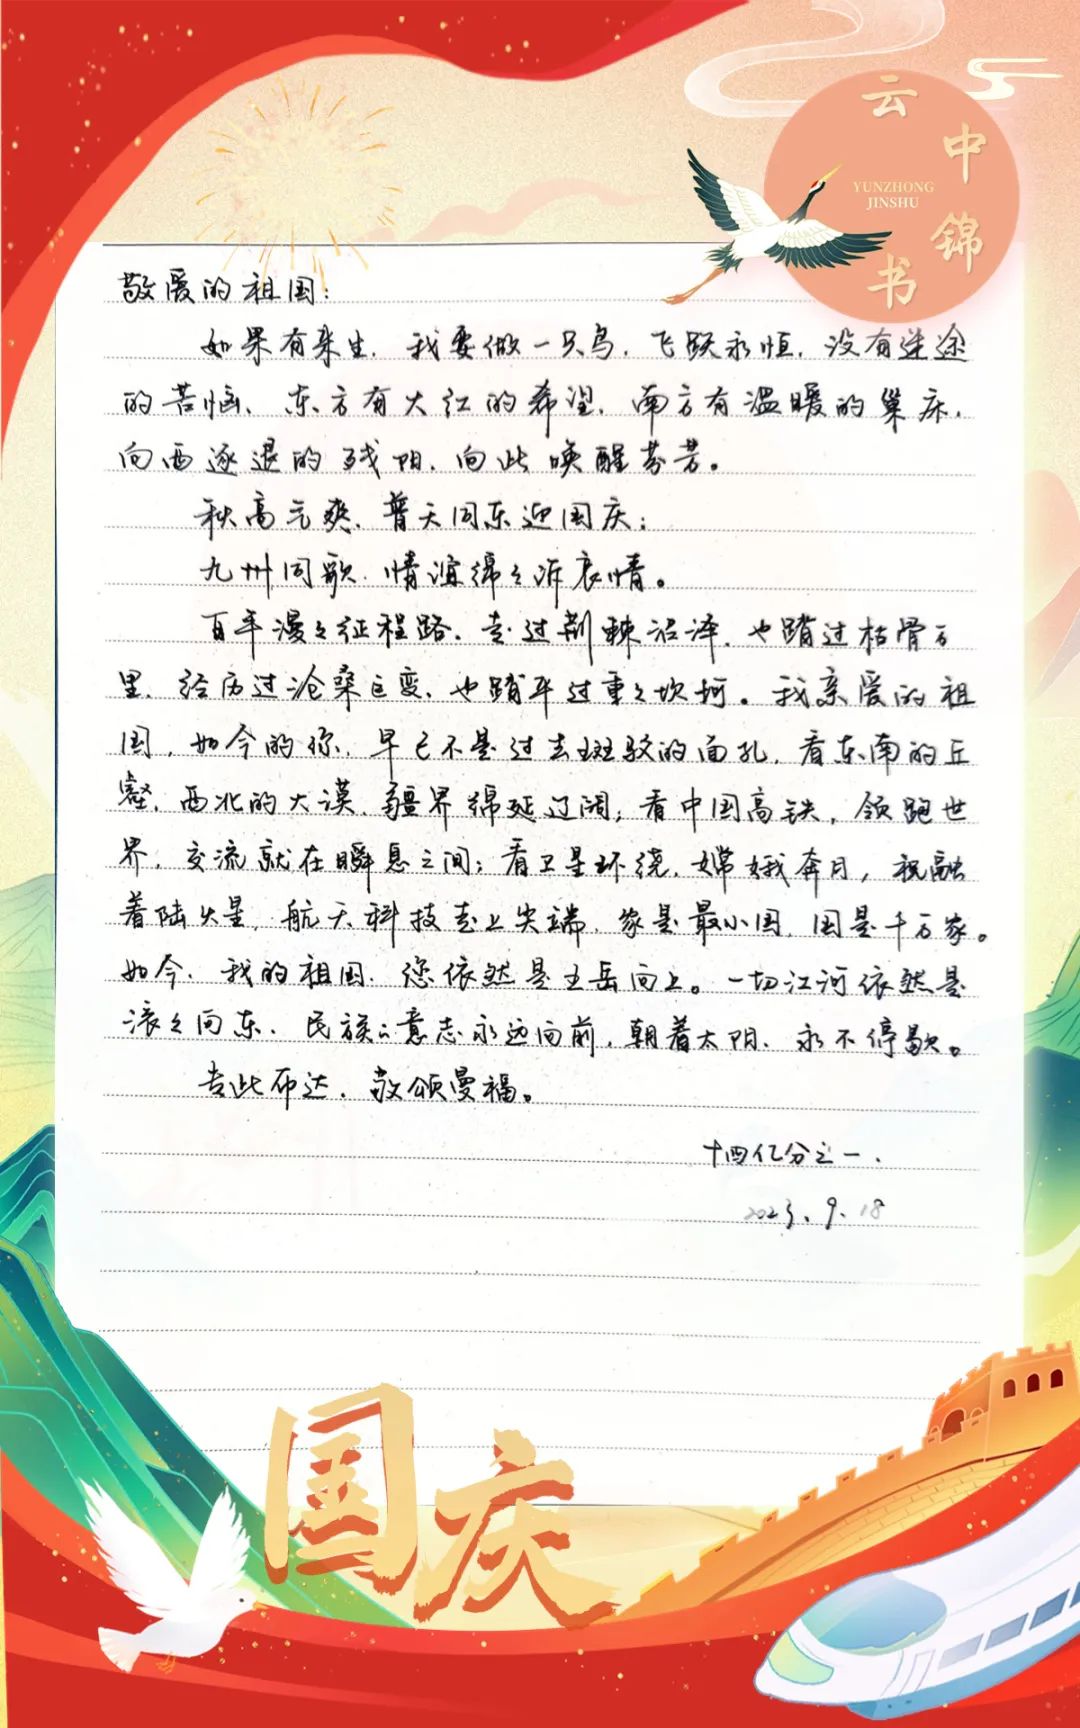 云中锦书
YUNZHONG
JINSHU
敬爱的祖国：
如果有来生，我要做一只鸟，飞跃永恒，没有迷途
的苦恼，东方有火红的希望，南方有温暖的巢床，
向西逐退的残阳，向北唤醒芬芳。
秋高气爽，普天同乐迎国庆；
九州同歌，情谊绵々诉衷情。
百年漫々征程路，走过荆棘沼泽，也踏过枯骨万
里，经历过沧桑巨变，也踏平过重々坎坷。我亲爱的祖
国，如今的你，早已不是过去斑驳的面孔，看东南的丘
壑，西北的大漠，疆界绵延辽阔；看中国高铁，领跑世
界，交流就在瞬息之间；看卫星环绕，嫦娥奔月，祝融
着陆火星，航天科技走上尖端，家是最小国，国是千万家。
如今，我的祖国，您依然是五岳向上。一切江河依然是
滚々向东，民族的意志永远向前，朝着太阳，永不停歇。
专此布达，敬颂曼福。
十四亿分之一.
2023.9.18
国庆